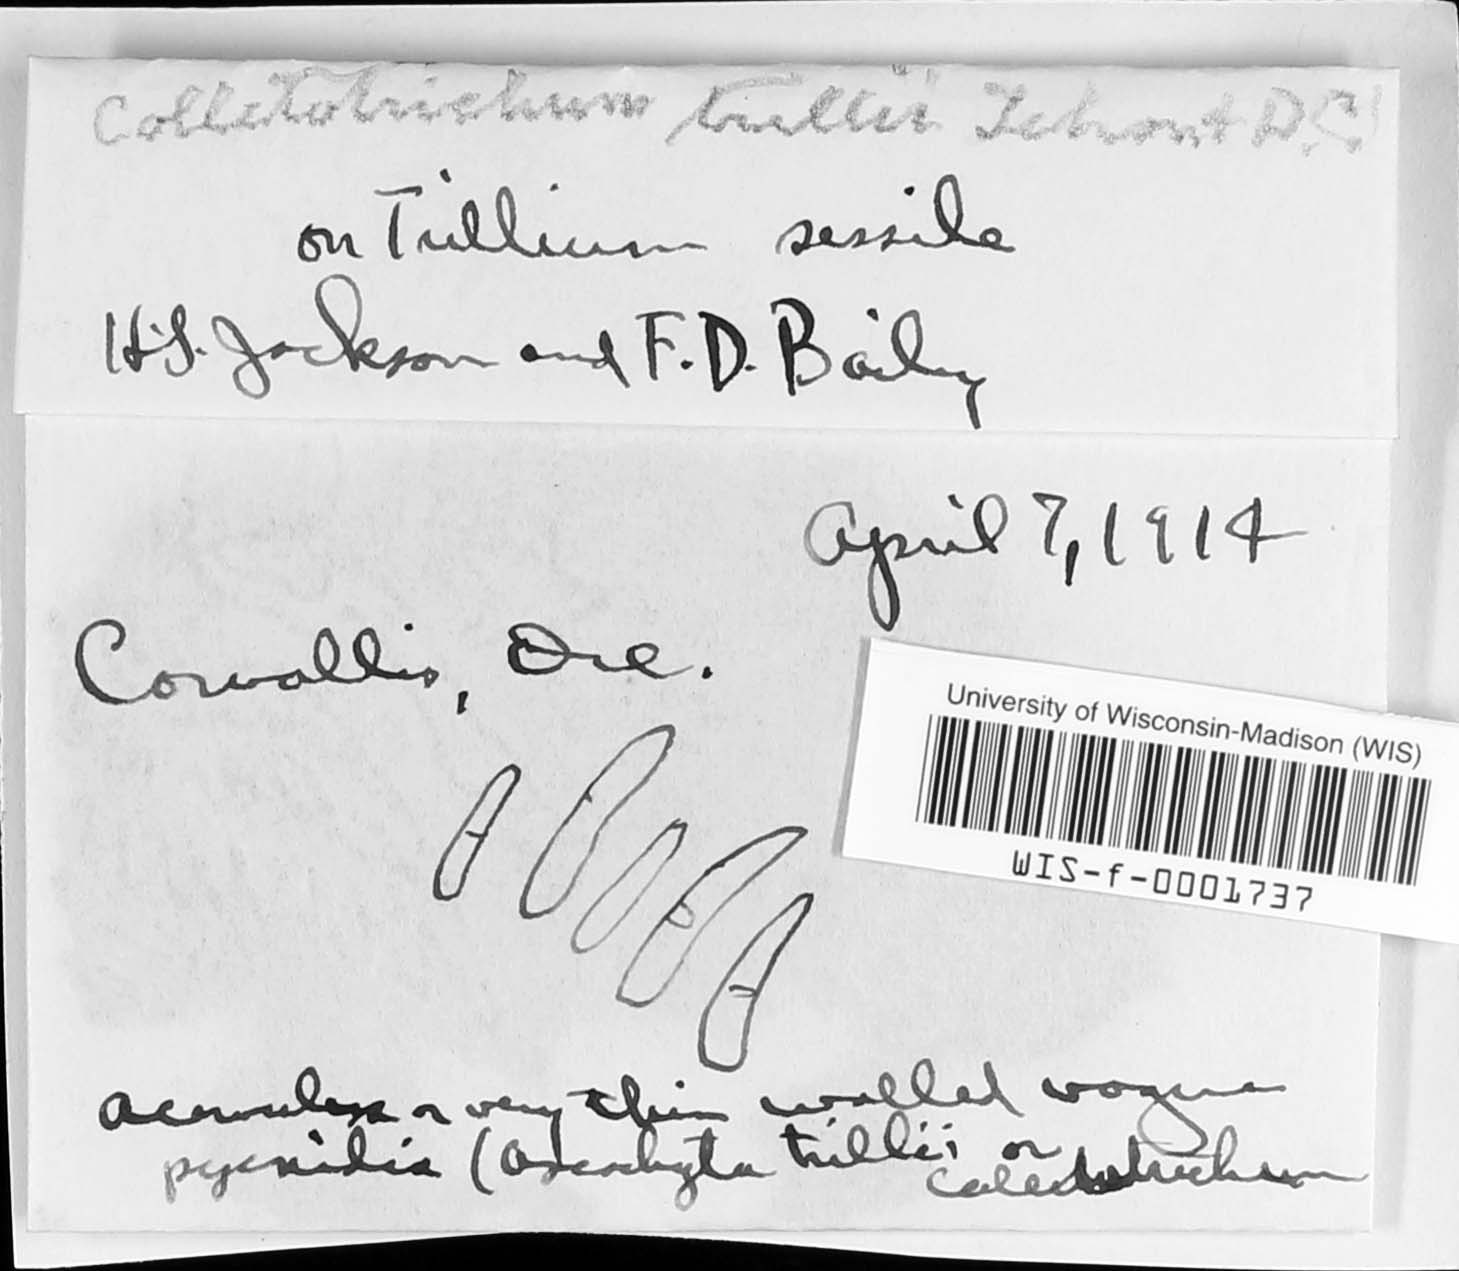 Colletotrichum trillii Tehon
on Trillium sessile
H.S. Jackson and F.D. Baily
April 7, 1914
Corvallis, Ore.
University of Wisconsin-Madison (WIS)
WIS-f-0001737
acervuless or very thin walled vague
pycnidia (Ascochyta trillii or
Colletotrichum